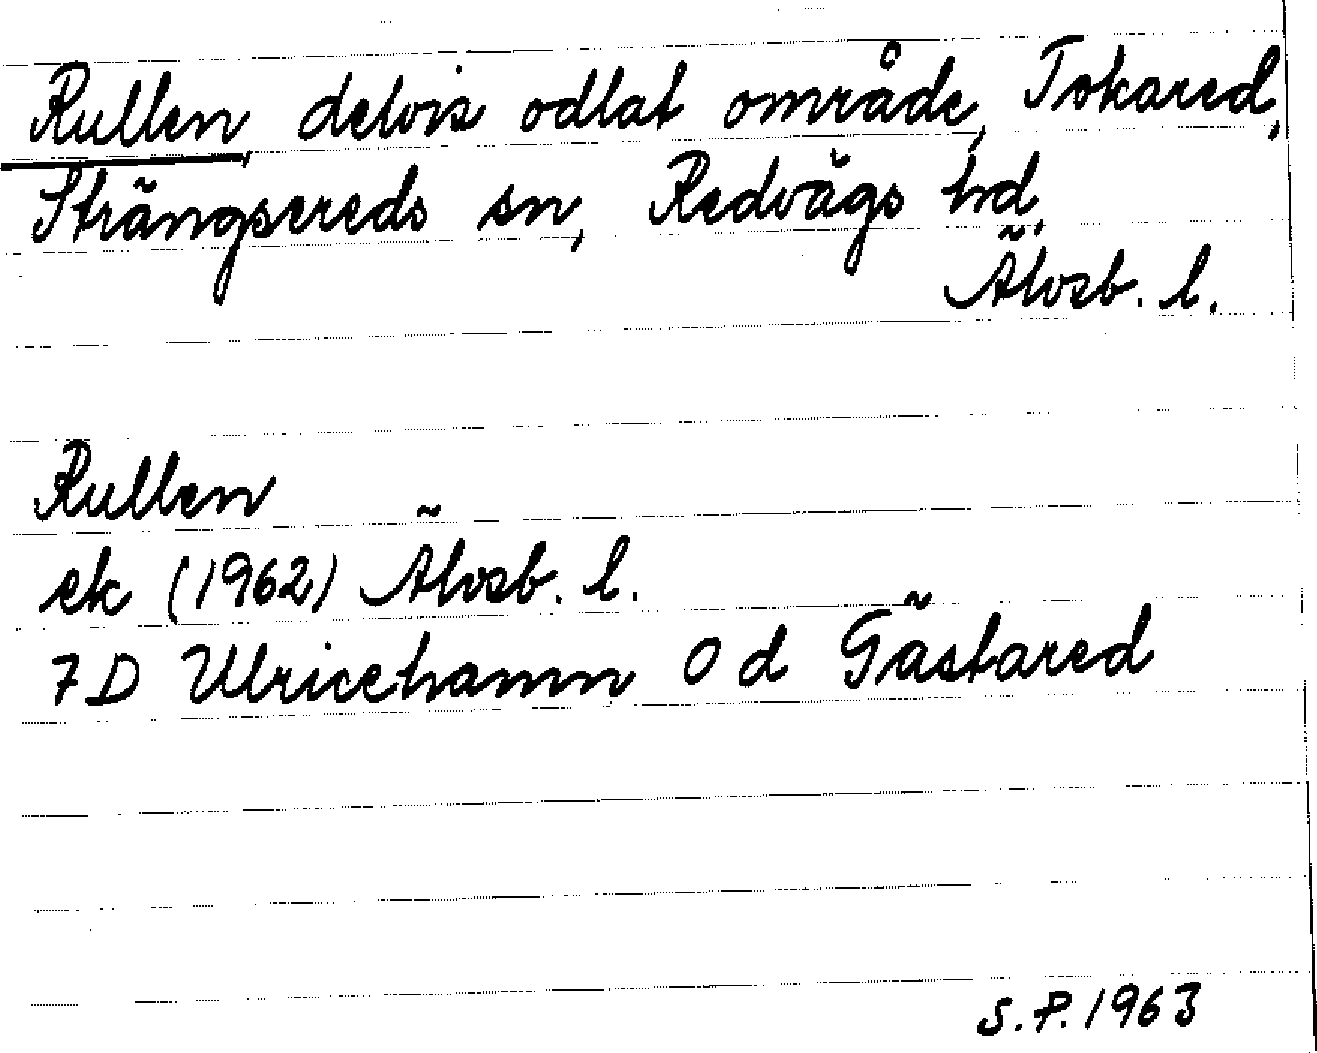 Rullen, delvis odlat område, Tokared,
Strängsereds sn, Redvägs hd,
Älvsb. l.
Rullen
ek (1962) Älvsb. l.
7D Ulricehamn 0 d Gästared
S.P. 1963